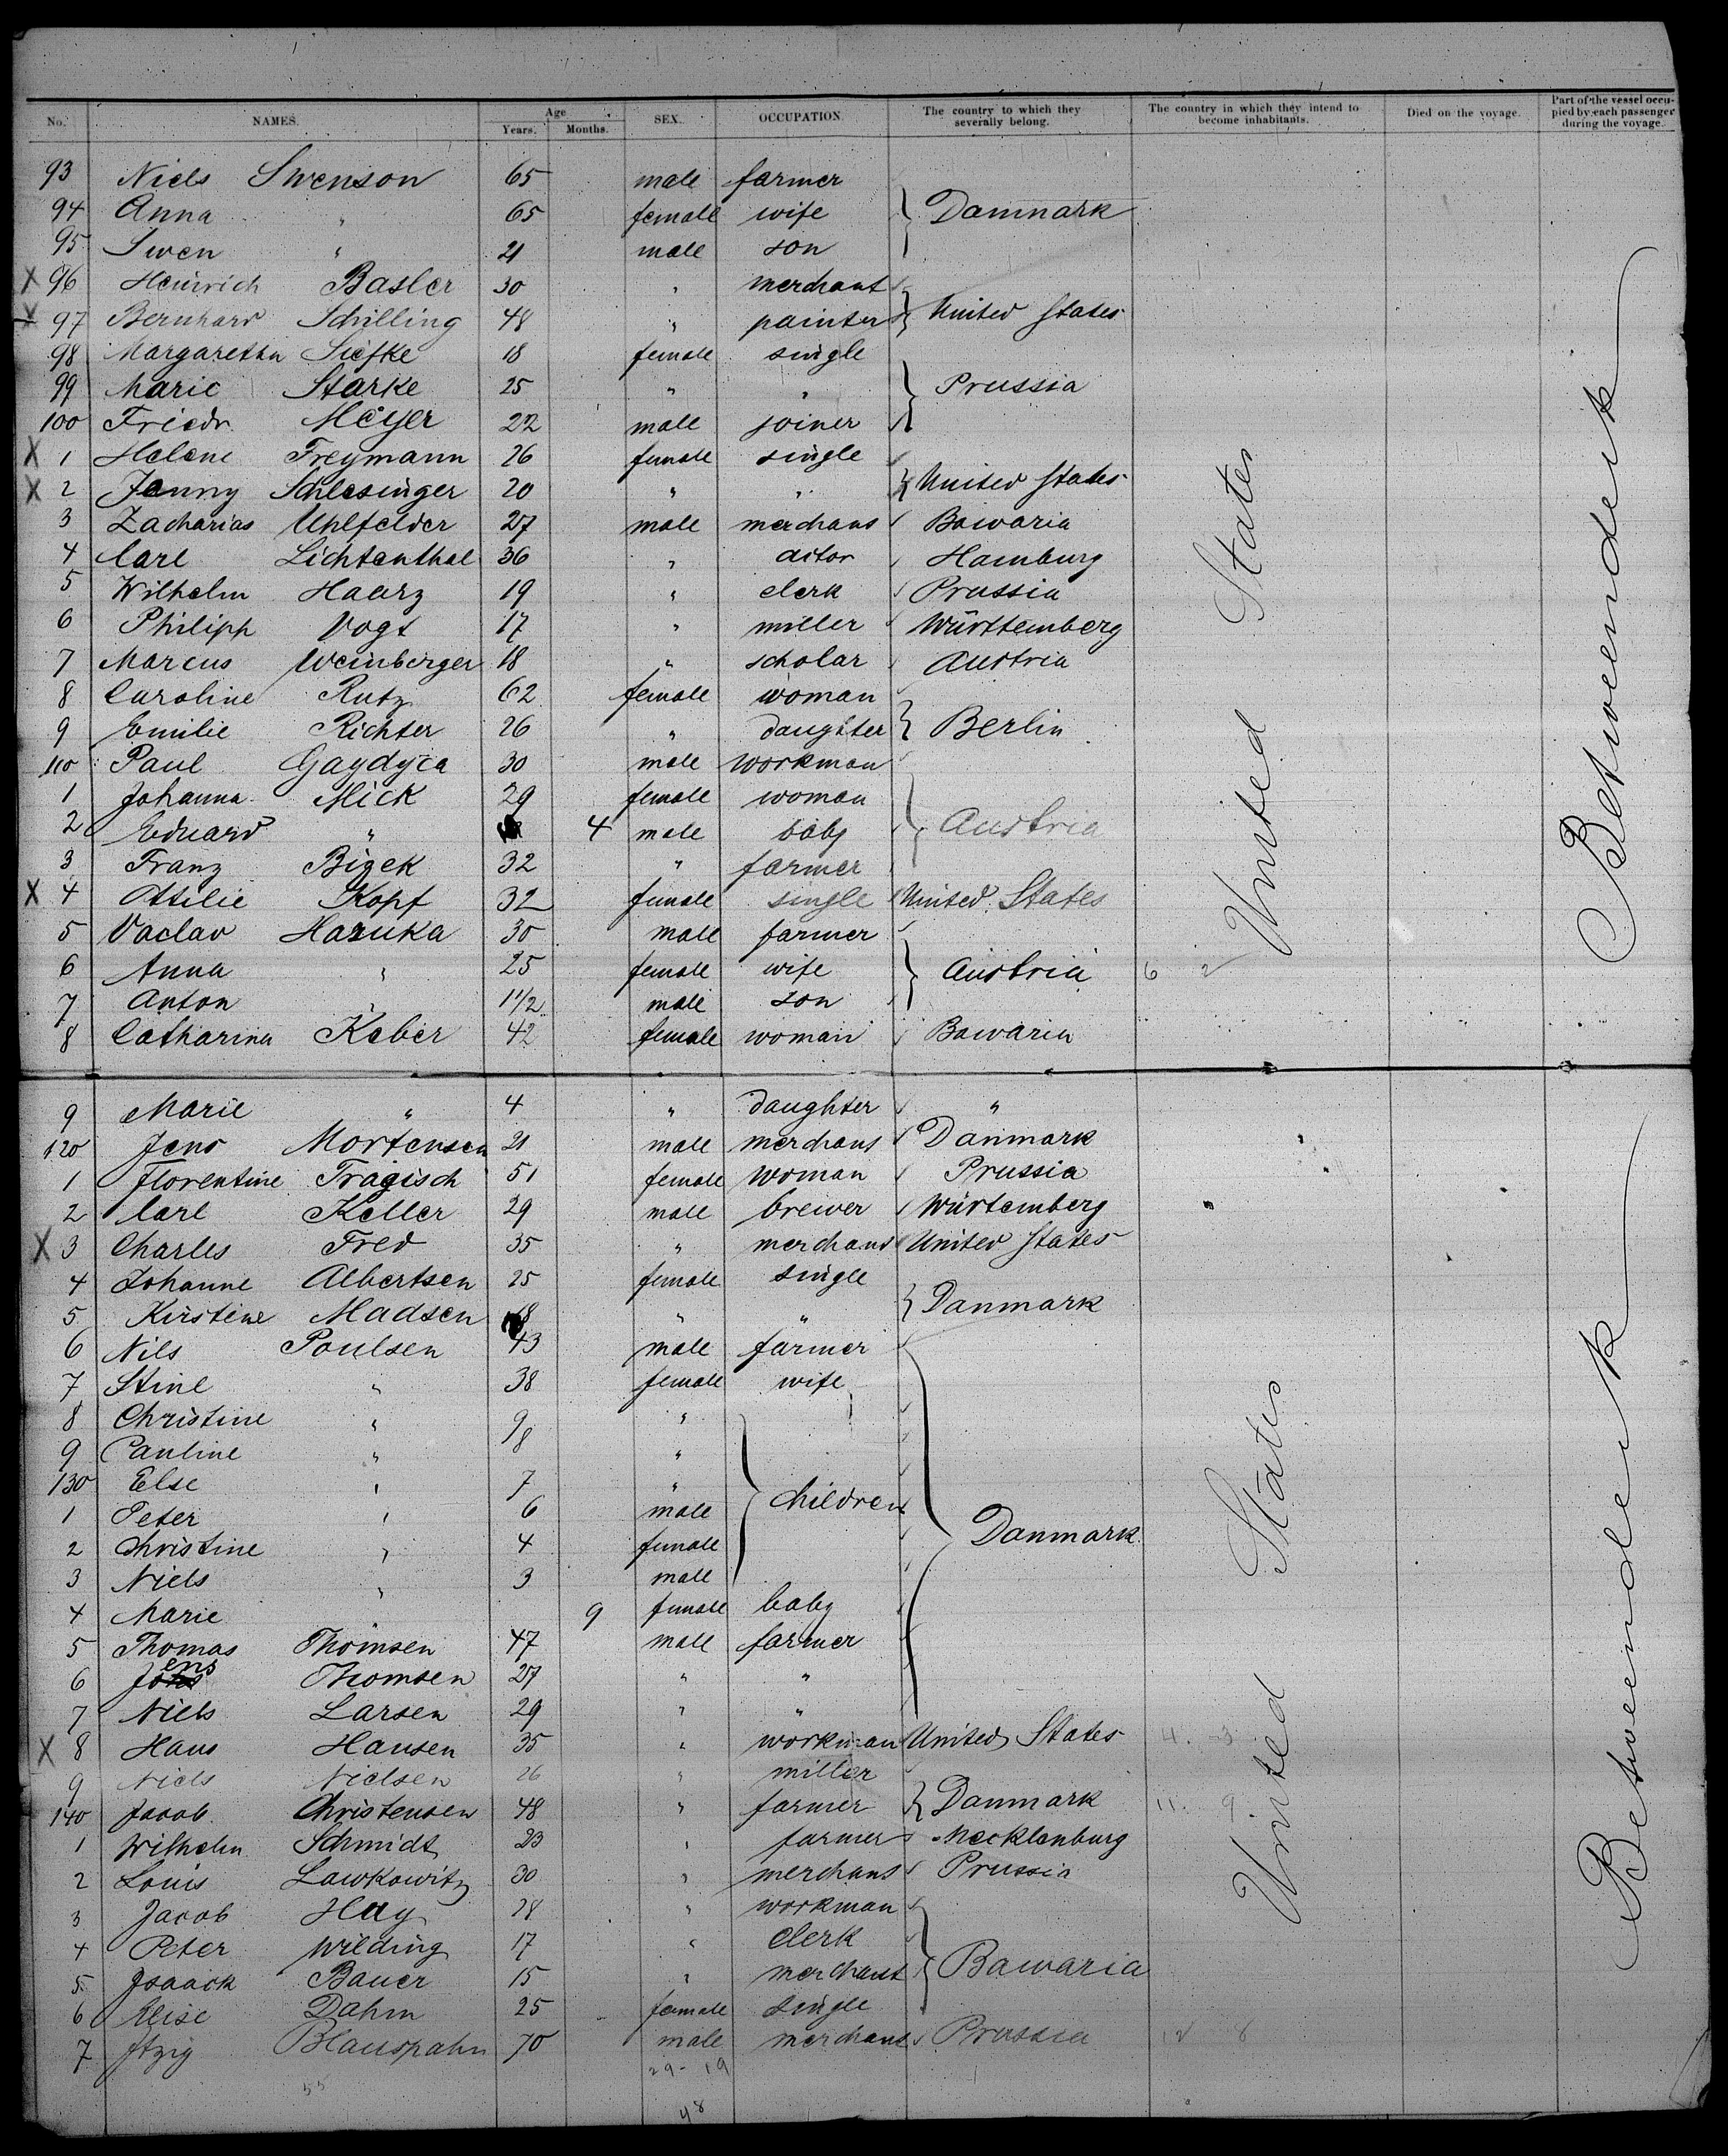 No. NAMES. Age Years. Months. SEX. OCCUPATION. The country to which they severally belong. The country in which they intend to become inhabitants. Died on the voyage. Part of the vessel occupied by each passenger during the voyage.
93 Niels Swenson 65 male farmer
94 Anna " 65 female wife } Danmark
95 Swen " 21 male son
X 96 Heinrich Basler 30 " merchant
X 97 Bernhard Schilling 48 " painter } United States
98 Margaretha Siefke 18 female single
99 Marie Starke 25 " " } Prussia
100 Friedr. Meyer 22 male joiner
X 1 Helene Freymann 26 female single
X 2 Jenny Schlesinger 20 " " } United States
3 Zacharias Uhlfelder 27 male merchant Bawaria
4 Carl Lichtenthal 36 " actor Hamburg
5 Wilhelm Haarz 19 " clerk Prussia
6 Philipp Vogt 17 " miller Württemberg
7 Marcus Weinberger 18 " scholar Austria
8 Caroline Rutz 62 female woman
9 Emilie Richter 26 " daughter } Berlin
110 Paul Gaydyca 30 male workman
1 Johanna Mick 29 female woman
2 Eduard " 4 male baby } Austria
3 Franz Bizek 32 " farmer
X 4 Ottilie Kopf 32 female single United States
5 Vaclav Hazuka 30 male farmer
6 Anna " 25 female wife } Austria 6 2
7 Anton " 1 1/2 male son
8 Catharina Keber 42 female woman Bawaria
United States
Betweendeck
9 Marie " 4 " daughter "
120 Jens Mortensen 21 male merchant Danmark
1 Florentine Tragisch 51 female woman Prussia
2 Carl Keller 29 male brewer Würtemberg
X 3 Charles Fred 35 " merchant United States
4 Johanne Albertsen 25 female single
5 Kirstine Madsen 18 " " } Danmark
6 Nils Poulsen 43 male farmer
7 Stine " 38 female wife
8 Christine " 9 "
9 Pauline " 8 "
130 Else " 7 "
1 Peter " 6 male } children
2 Christine " 4 female } Danmark
3 Niels " 3 male
4 Marie " 9 female baby
5 Thomas Thomsen 47 male farmer
6 Jens Thomsen 27 " "
7 Niels Larsen 29 " "
X 8 Hans Hansen 35 " workman United States 4. 3
9 Niels Nielsen 26 " miller
140 Jacob Christensen 48 " farmer } Danmark 11. 9
1 Wilhelm Schmidt 23 " farmer Mecklenburg
2 Louis Lawkowitz 30 " merchant Prussia
3 Jacob Hay 28 " workman
4 Peter Wilding 17 " clerk
5 Isaack Bauer 15 " merchant } Bawaria
6 Elise Dahm 25 female single
7 Itzig Blauspahn 70 male merchant Prussia 12 8
United States
Betweendeck
55 29 - 19
48